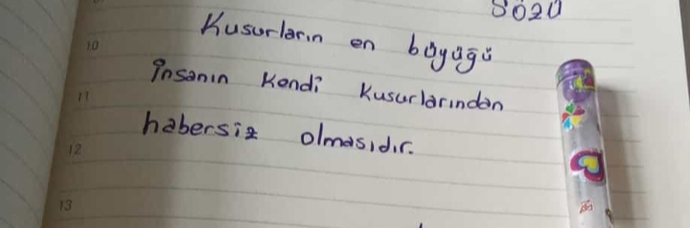 SÖZÜ
10
Kusurların en büyüğü
insanın kendi kusurlarından
11
habersiz olmasıdır.
12
13